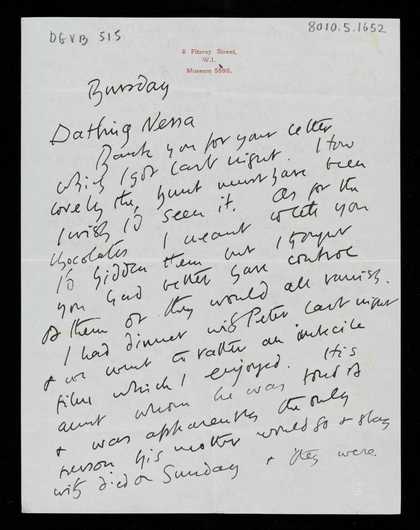 DGVB 515
8010.5.1652
8 Fitzroy Street,
W.1.
Museum
Bursday
Dathing Nessa
Bank you for your letter
which I got last night. How
lovely the hunt must have been
I wish I'd seen it. As for the
chocolates I meant to tell you
I'd hidden them but I thought
you had better have control
of them or they would all vanish.
I had dinner with Peter last night
& we went to rather an imbecile
film which I enjoyed. His
aunt whom he was fond of
& was apparently the only
person his mother would go & stay
with died on Sunday & they were